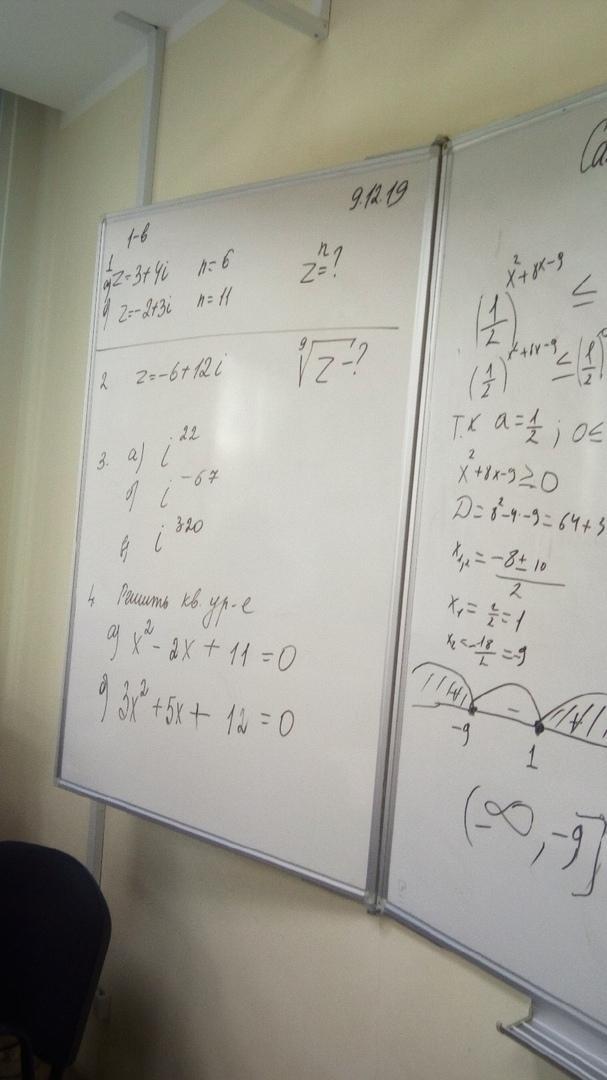 9.12.19
1-в
1
а) z=3+4i n=6 zⁿ=?
б) z=-2+3i n=11
2 z=-6+12i ⁹√z -?
3. а) i²²
б) i⁻⁶⁷
в) i³²⁰
4 Решить кв. ур-е
а) x²-2x+11=0
б) 3x²+5x+12=0
(1/2)^(x²+8x-9) ≤
(1/2)^(x²+8x-9) ≤ (1/2)
Т.к a=1/2; 0≤
x²+8x-9≥0
D=8²-4·-9=64+3
x₁,₂=-8±10/2
x₁=2/2=1
x₂=-18/2=-9
-
-9 1
(-∞, -9]